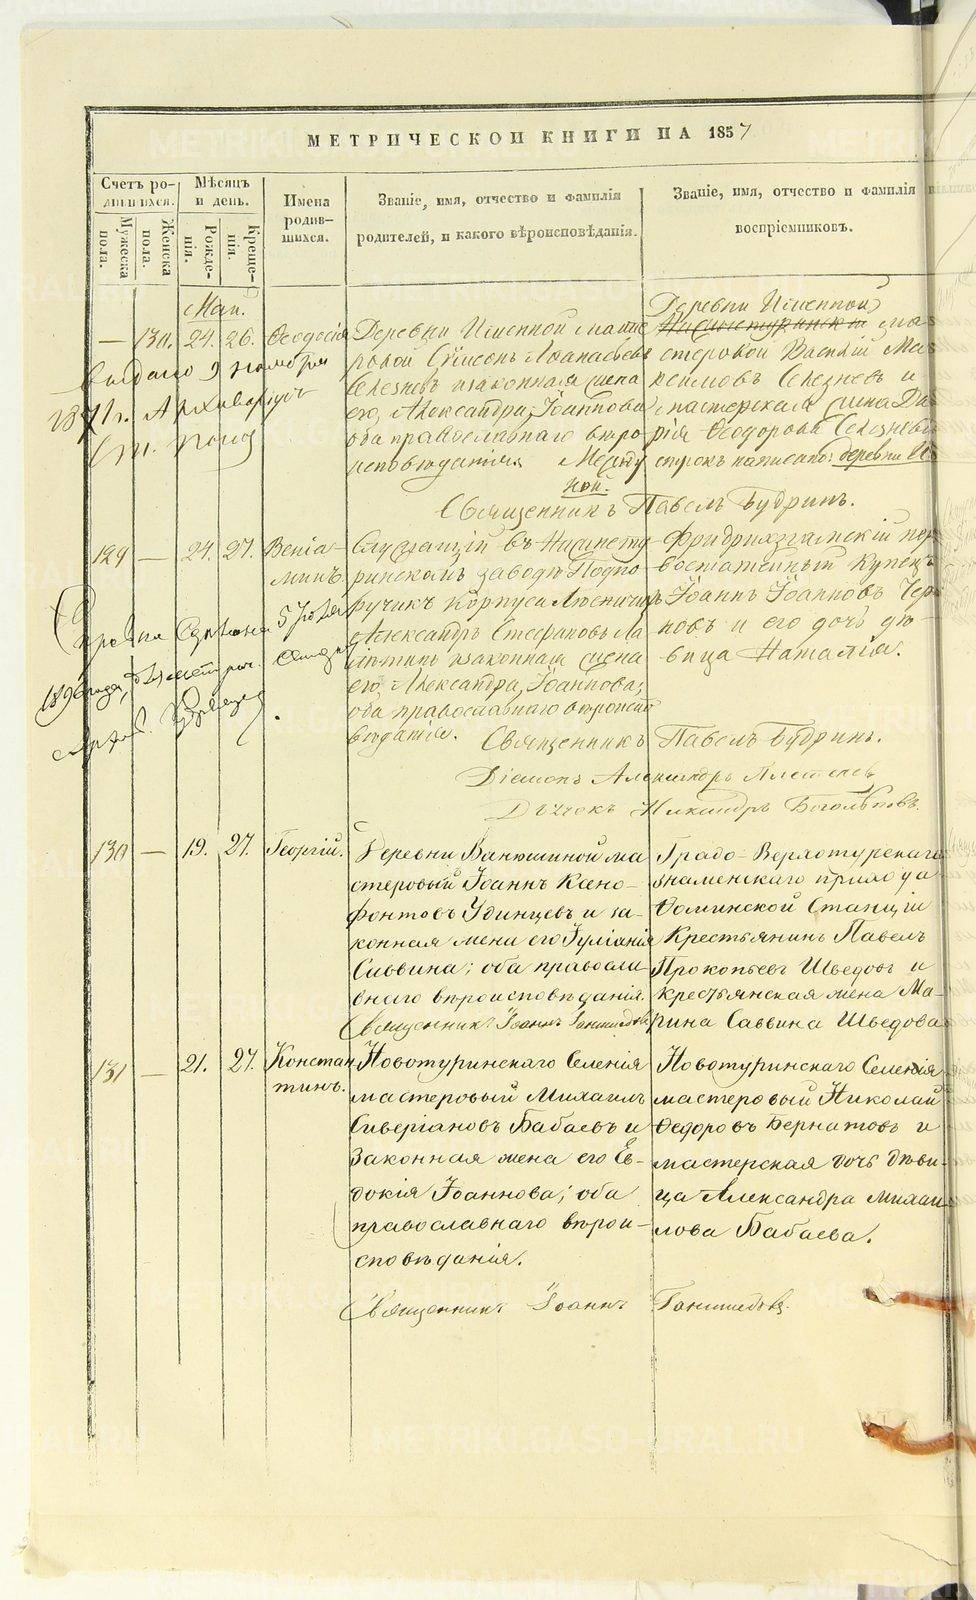 МЕТРИЧЕСКОЙ КНИГИ НА 1857
Счетъ ро-
дившихся.
Мужеска
пола.
Женска
пола.
Мѣсяцъ
и день.
Рожде-
нія.
Креще-
нія.
Имена
родив-
шихся.
Званіе, имя, отчество и фамилія
родителей, и какого вѣроисповѣданія.
Званіе, имя, отчество и фамилія
воспріемниковъ.
Маи.
— 130. 24. 26. Ѳеодосія
Деревни
ровой Сѵмеонъ
Селезневъ и законная жена
его, Александра Іоаннова
оба православнаго вѣро
исповѣданія.
Деревни
стеровой Василій Мак
симовъ Селезневъ и
мастерская жена Да
рія Ѳеодорова Селезнева
строкъ написано: деревни
Священникъ Павелъ Будринъ.
129 — 24. 27. Веніа-
минъ.
Служащій въ Нижнету-
ринскомъ заводѣ Подпо-
ручикъ Корпуса Лѣсничихъ
Александръ Стефановъ Ла
и законная жена
его Александра Іоаннова;
оба православнаго вѣроиспо
вѣданія.
Фридрихсгамскій пер
востатейный Купецъ
Іоаннъ Іоанновъ Чер
новъ и его дочь дѣ-
вица Наталія.
Священникъ Павелъ Будринъ.
Діаконъ Александръ
Дьячокъ Никандръ Боголѣповъ.
130 — 19. 27. Георгій.
Деревни Ванюшиной ма
стеровый Іоаннъ Ксено-
фонтовъ Удинцевъ и за-
конная жена его Іуліанія
Саввина; оба правосла-
внаго вѣроисповѣданія.
Священникъ Іоаннъ
Градо-Верхотурскаго
знаменскаго прихода
Фоминской Станціи
Крестьянинъ Павелъ
Прокопьевъ Шведовъ и
крестьянская жена Ма-
рина Саввина Шведова
131 — 21. 27. Констан
тинъ.
Новотуринскаго Селенія
мастеровый Михаилъ
Сиверіановъ Бабаевъ и
Законная жена его Ев-
докія Іоаннова; оба
православнаго вѣрои-
сповѣданія.
Новотуринскаго Селенія
мастеровый Николай
Ѳедоровъ Бернатовъ и
мастерская дочь дѣви-
ца Александра Михаи-
лова Бабаева.
Священникъ Іоаннъ